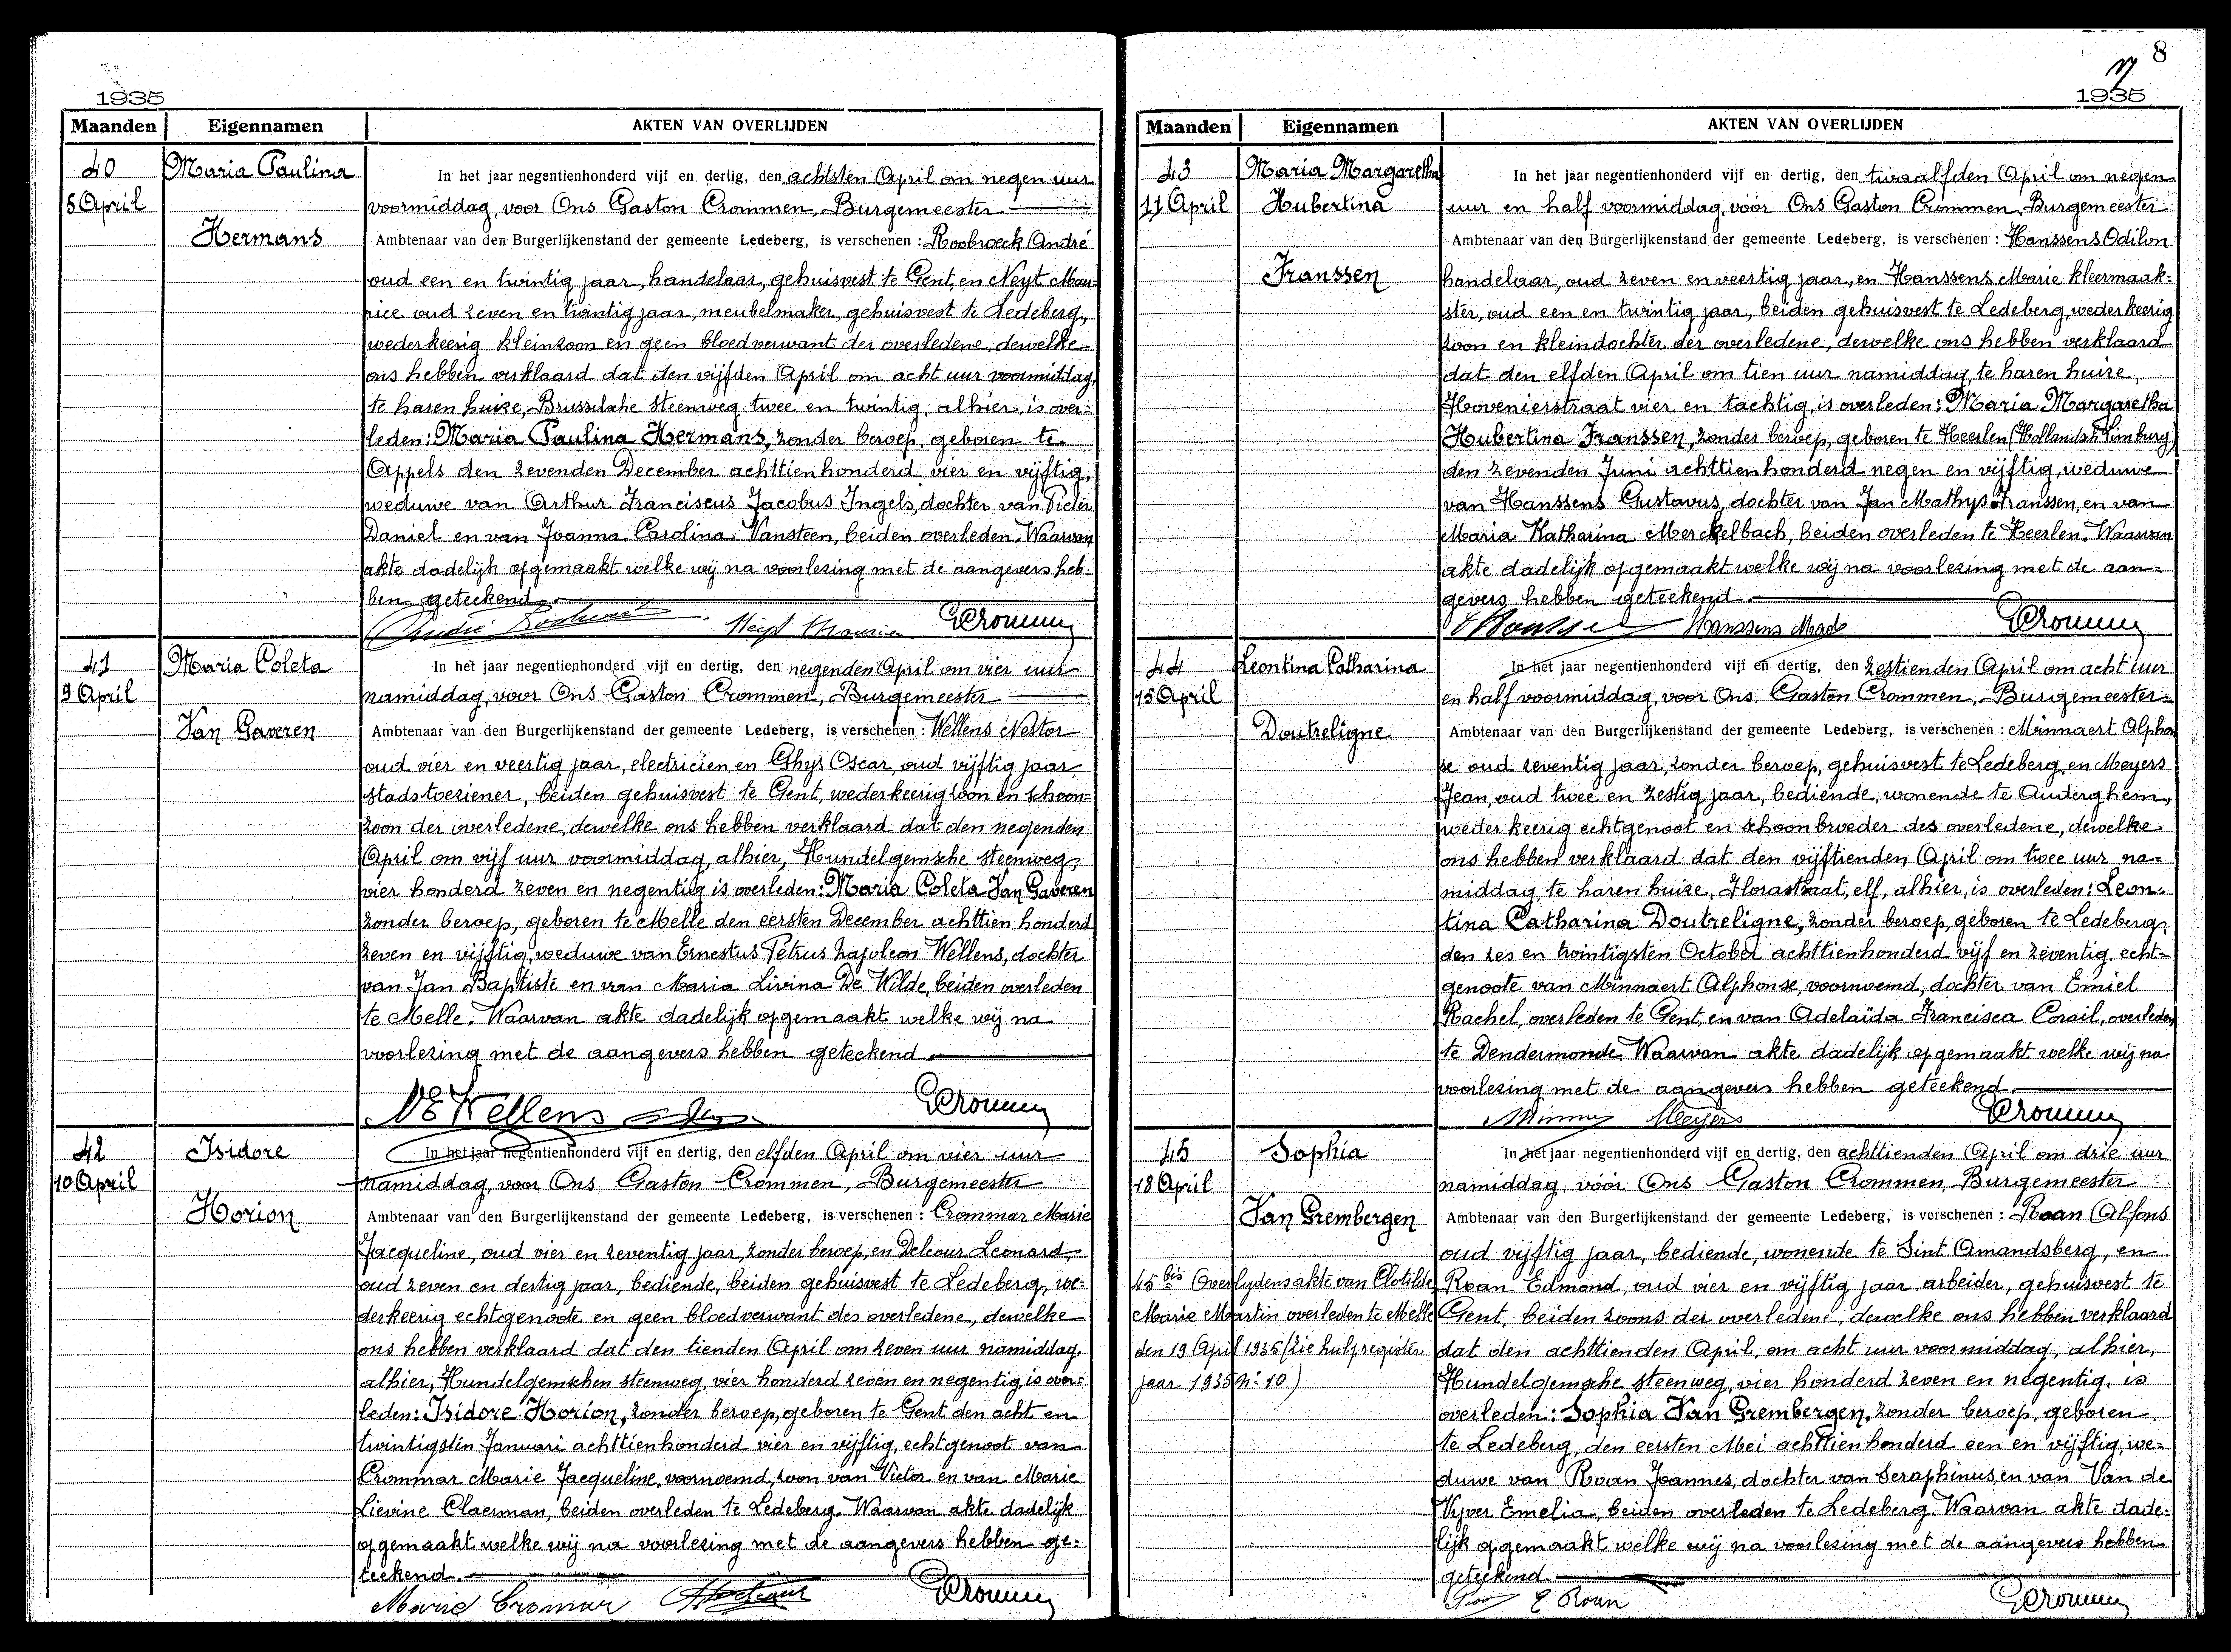 1935
Maanden Eigennamen AKTEN VAN OVERLIJDEN
40
5 April
Maria Paulina
Hermans
In het jaar negentienhonderd vijf en dertig, den achtsten April om negen uur
voormiddag, voor Ons Gaston Crommen, Burgemeester
Ambtenaar van den Burgerlijkenstand der gemeente Ledeberg, is verschenen : Roobroeck André
oud een en twintig jaar, handelaar, gehuisvest te Gent, en Neyt Mau-
rice oud zeven en twintig jaar, meubelmaker, gehuisvest te Ledeberg,
wederkeerig kleinzoon en geen bloedverwant der overledene, dewelke
ons hebben verklaard dat den vijfden April om acht uur voormiddag,
te haren huize, Brusselsche steenweg twee en twintig, alhier, is over-
leden: Maria Paulina Hermans, zonder beroep, geboren te
Appels den zevenden December achttienhonderd vier en vijftig,
weduwe van Arthur Franciscus Jacobus Ingels, dochter van Pieter
Daniel en van Joanna Carolina Vansteen, beiden overleden. Waarvan
akte dadelijk opgemaakt welke wij na voorlezing met de aangevers heb-
ben geteekend.
Neyt Maurice GCrommen
41
9 April
Maria Coleta
Van Gaveren
In het jaar negentienhonderd vijf en dertig, den negenden April om vier uur
namiddag, voor Ons Gaston Crommen, Burgemeester
Ambtenaar van den Burgerlijkenstand der gemeente Ledeberg, is verschenen : Wellens Nestor
oud vier en veertig jaar, electricien, en Ghys Oscar, oud vijftig jaar,
stadstoeziener, beiden gehuisvest te Gent, wederkeerig zoon en schoon-
zoon der overledene, dewelke ons hebben verklaard dat den negenden
April om vijf uur voormiddag, alhier, Hundelgemsche steenweg,
vier honderd zeven en negentig is overleden: Maria Coleta Van Gaveren
zonder beroep, geboren te Melle den eersten December achttien honderd
zeven en vijftig, weduwe van Ernestus Petrus Napoleon Wellens, dochter
van Jan Baptiste en van Maria Livina De Wilde, beiden overleden
te Melle. Waarvan akte dadelijk opgemaakt welke wij na
voorlezing met de aangevers hebben geteekend.
NEWellens GCrommen
42
10 April
Isidore
Horion
In het jaar negentienhonderd vijf en dertig, den elfden April om vier uur
namiddag, voor Ons Gaston Crommen, Burgemeester
Ambtenaar van den Burgerlijkenstand der gemeente Ledeberg, is verschenen : Crommar Marie
Jacqueline, oud vier en zeventig jaar, zonder beroep, en Delcour Leonard,
oud zeven en dertig jaar, bediende, beiden gehuisvest te Ledeberg, we-
derkeerig echtgenoote en geen bloedverwant des overledene, dewelke
ons hebben verklaard dat den tienden April om zeven uur namiddag,
alhier, Hundelgemschen steenweg, vier honderd zeven en negentig, is over-
leden: Isidore Horion, zonder beroep, geboren te Gent den acht en
twintigsten Januari achttienhonderd vier en vijftig, echtgenoot van
Crommar Marie Jacqueline, voornoemd, zoon van Victor en van Marie
Lievine Claerman, beiden overleden te Ledeberg. Waarvan akte dadelijk
opgemaakt welke wij na voorlezing met de aangevers hebben ge-
teekend.
Marie Cromar GCrommen
8
1935
Maanden Eigennamen AKTEN VAN OVERLIJDEN
43
11 April
Maria Margaretha
Hubertina
Franssen
In het jaar negentienhonderd vijf en dertig, den twaalfden April om negen
uur en half voormiddag, vóór Ons Gaston Crommen, Burgemeester
Ambtenaar van den Burgerlijkenstand der gemeente Ledeberg, is verschenen : Hanssens Odilon
handelaar, oud zeven en veertig jaar, en Hanssens Marie kleermaak-
ster, oud een en twintig jaar, beiden gehuisvest te Ledeberg, wederkeerig
zoon en kleindochter der overledene, dewelke ons hebben verklaard
dat den elfden April om tien uur namiddag, te haren huize,
Hovenierstraat vier en tachtig, is overleden: Maria Margaretha
Hubertina Franssen, zonder beroep, geboren te Heerlen (Hollandsch Limburg)
den zevenden Juni achttienhonderd negen en vijftig, weduwe
van Hanssens Gustavus, dochter van Jan Mathys Franssen, en van
Maria Katharina Merckelbach, beiden overleden te Heerlen. Waarvan
akte dadelijk opgemaakt welke wij na voorlezing met de aan-
gevers hebben geteekend.
Hanssens Made GCrommen
44
15 April
Leontina Catharina
Doutreligne
In het jaar negentienhonderd vijf en dertig, den zestienden April om acht uur
en half voormiddag, voor Ons Gaston Crommen, Burgemeester
Ambtenaar van den Burgerlijkenstand der gemeente Ledeberg, is verschenen : Minnaert Alphon
se oud zeventig jaar, zonder beroep, gehuisvest te Ledeberg, en Meyers
Jean, oud twee en zestig jaar, bediende, wonende te Auderghem,
wederkeerig echtgenoot en schoonbroeder des overledene, dewelke
ons hebben verklaard dat den vijftienden April om twee uur na-
middag, te haren huize, Florastraat, elf, alhier, is overleden: Leon-
tina Catharina Doutreligne, zonder beroep, geboren te Ledeberg,
den zes en twintigsten October achttienhonderd vijf en zeventig, echt-
genoote van Minnaert Alphonse, voornoemd, dochter van Emiel
Rachel, overleden te Gent, en van Adelaïda Francisca Corail, overleden
te Dendermonde. Waarvan akte dadelijk opgemaakt welke wij na
voorlezing met de aangevers hebben geteekend.
Meyers GCrommen
45
18 April
Sophia
Van Grembergen
45 bis Overlydensakte van Clotilde
Marie Martin overleden te Melle
den 19 April 1935 (zie hulpregister
jaar 1935 N° 10)
In het jaar negentienhonderd vijf en dertig, den achttienden April om drie uur
namiddag, vóór Ons Gaston Crommen, Burgemeester
Ambtenaar van den Burgerlijkenstand der gemeente Ledeberg, is verschenen : Roan Alfons
oud vijftig jaar, bediende, wonende te Sint Amandsberg, en
Roan Edmond, oud vier en vijftig jaar arbeider, gehuisvest te
Gent, beiden zoons der overledene, dewelke ons hebben verklaard
dat den achttienden April, om acht uur voormiddag, alhier,
Hundelgemsche steenweg, vier honderd zeven en negentig, is
overleden: Sophia Van Grembergen, zonder beroep, geboren
te Ledeberg, den eersten Mei achttienhonderd een en vijftig, we-
duwe van Roan Joannes, dochter van Seraphinus en van Van de
Vyver Emelia, beiden overleden te Ledeberg. Waarvan akte dade-
lijk opgemaakt welke wij na voorlezing met de aangevers hebben
geteekend.
E Roan GCrommen